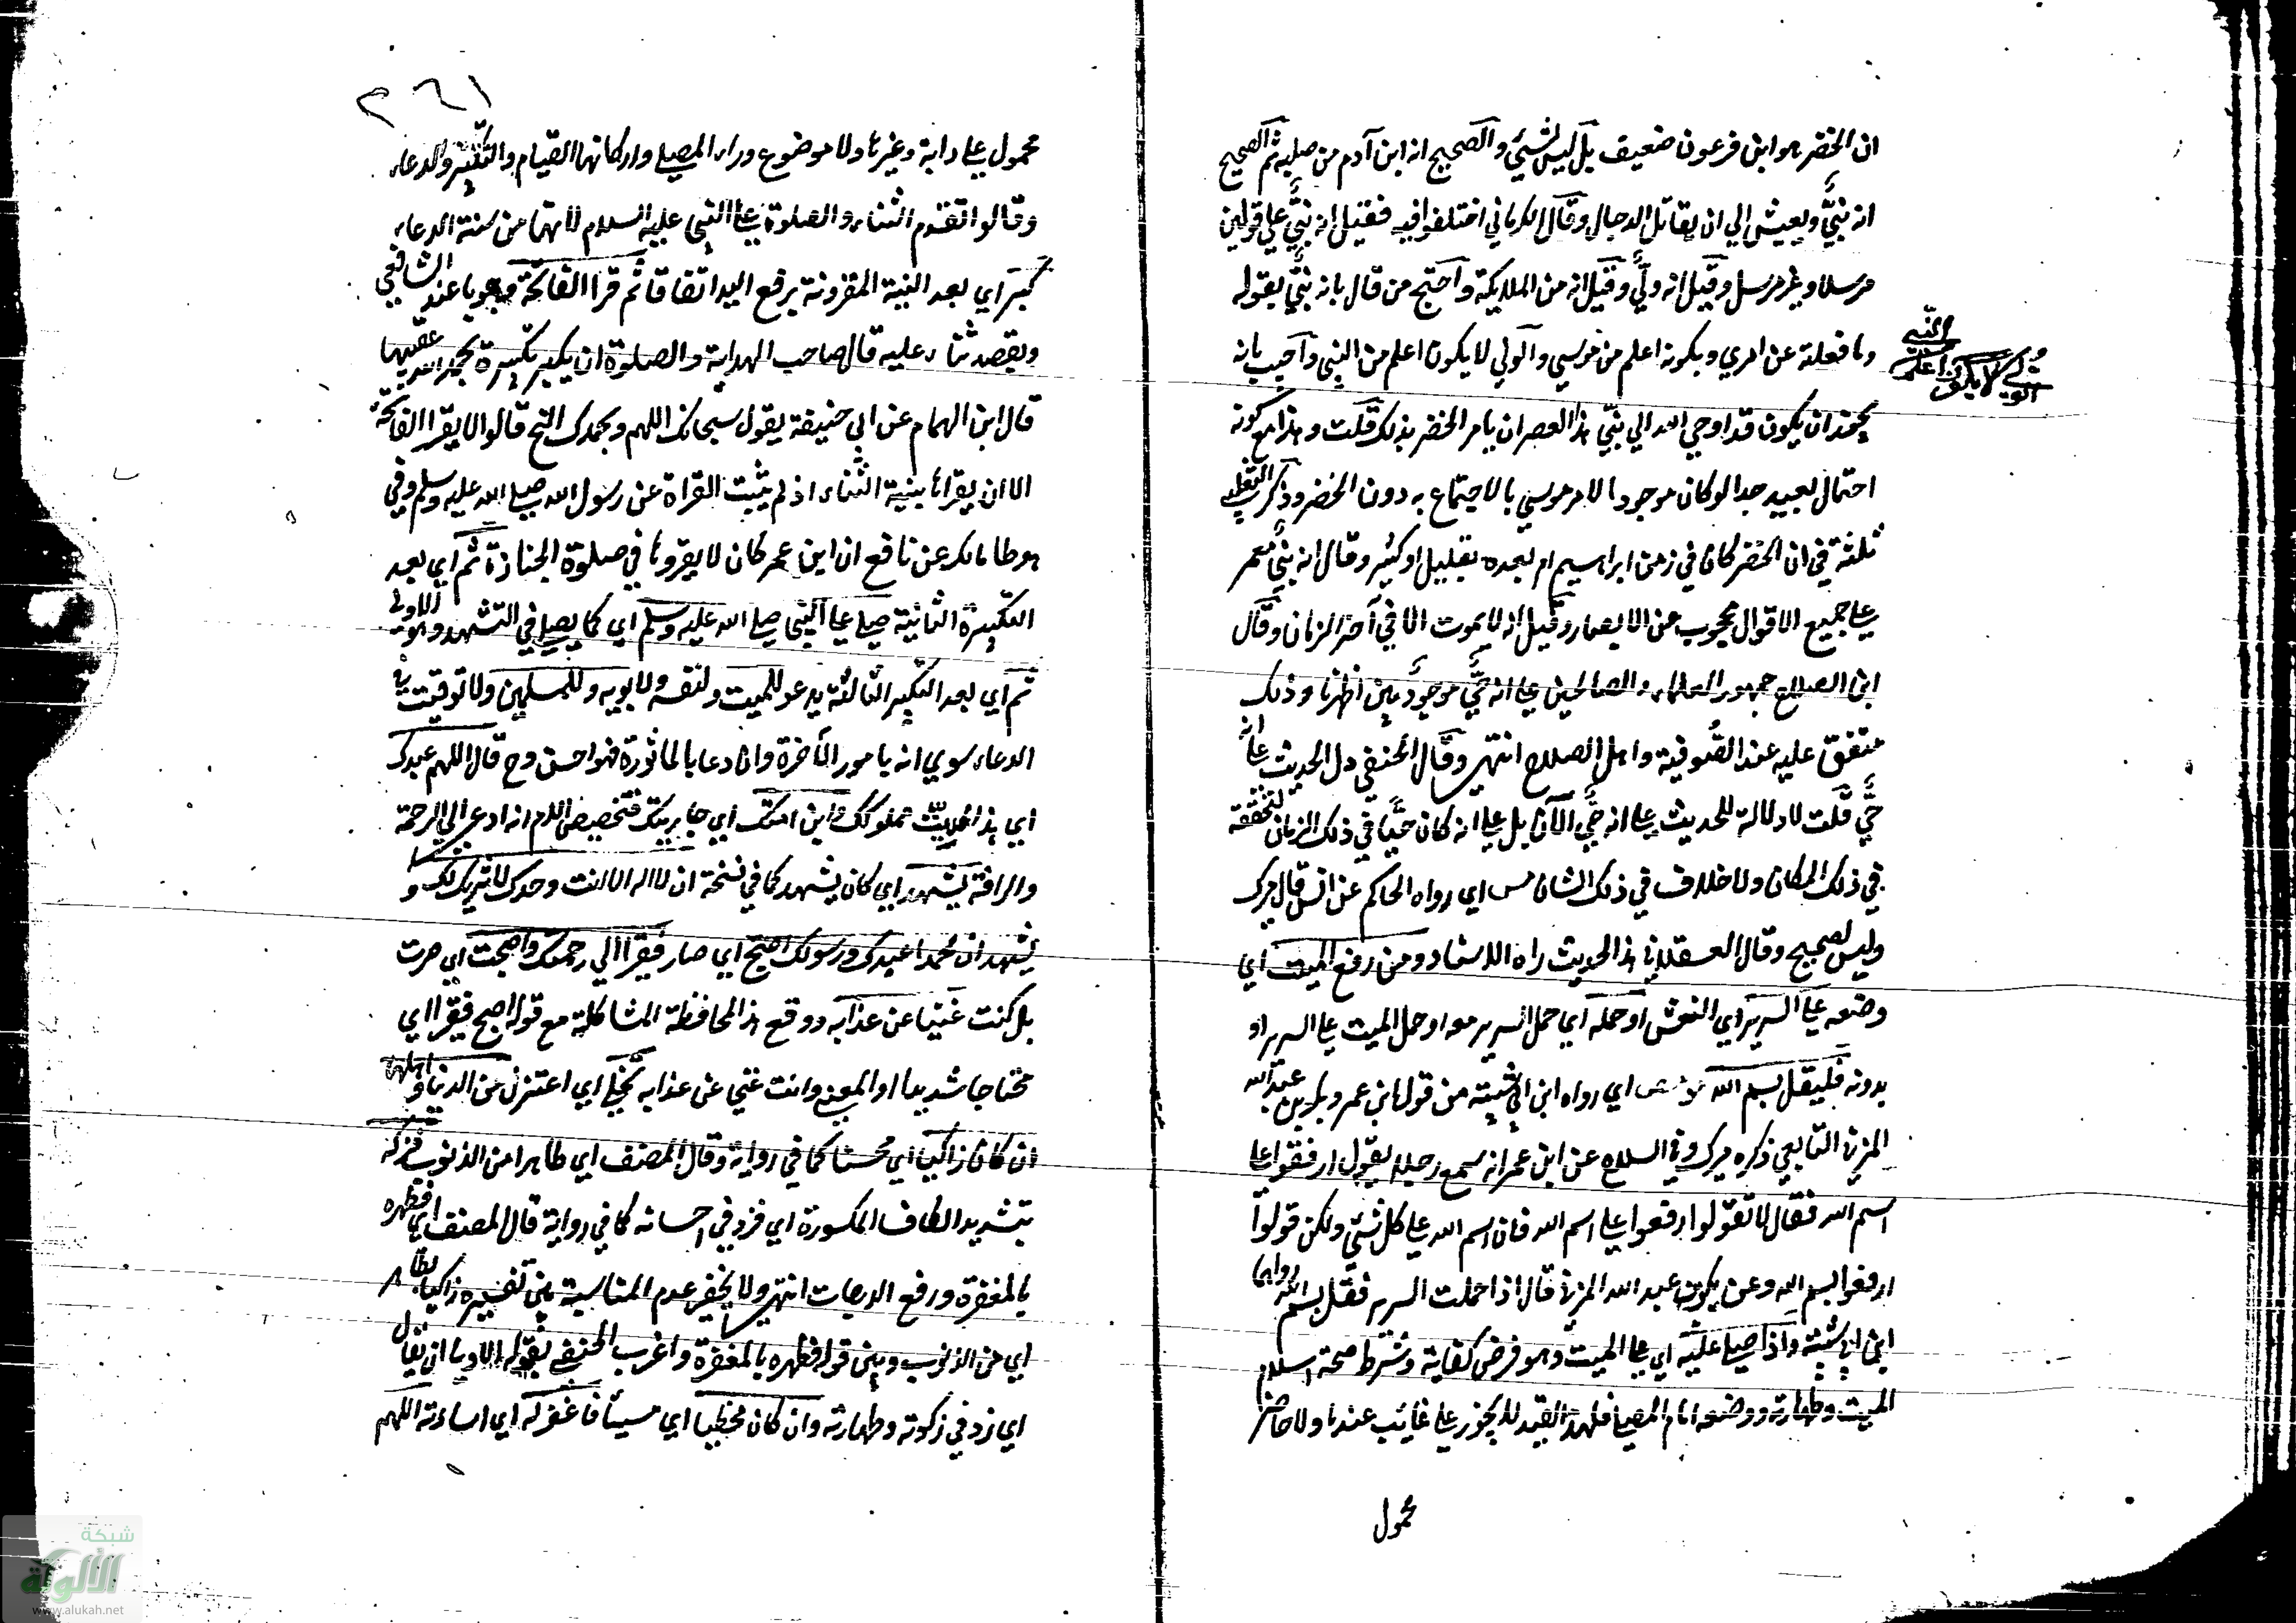 ان الخضر هو ابن فرعون ضعيف بل ليس بشئ والصحيح انه ابن آدم من صلبه ثم الصحيح
انه نبيّ ويعيش الي ان يقاتل الدجال وقال الكرماني اختلفوا فيه فقيل انه نبيّ علي قولين
مرسلا وغير مرسل وقيل انه وليّ وقيل انه من الملايكة واحتج من قال بانه نبيّ بقوله
وما فعلته عن امري وبكونه اعلم من موسي والولي لا يكون اعلم من النبي واجيب بانه
الولي لا يكون اعلم
من النبي
يجوز ان يكون قد اوحي الله الي نبيّ هذا العصر ان يامر الخضر بذلك قلت وهذا مع كونه
احتمال بعيد جدا لو كان موجودا لامر موسي بالاجتماع به دون الخضر وذكر الثعلبي
ثلثة في ان الخضر كان في زمن ابراهيم ام بعده بقليل او كثير وقال انه نبيّ معمر
علي جميع الاقوال محجوب عن الابصار وقيل انه لا يموت الا في آخر الزمان وقال
ابن الصلاح جمهور العلماء والصالحين علي انه حيّ موجود بين اظهرنا وذلك
متفق عليه عند الصوفية واهل الصلاح انتهي وقال الحنفي دل الحديث علي انه
حيّ قلت لا دلالة للحديث علي انه حيّ الآن بل علي انه كان حيّا في ذلك الزمان لتحققه
في ذلك المكان ولا خلاف في ذلك الشان مس اي رواه الحاكم عن انس قال ميرك
وليس بصحيح وقال العسقلاني هذا الحديث واه الاسناد ومن رفع الميت اي
وضعه علي السرير اي النعش او حمله اي حمل السرير معه او حمل الميت علي السرير او
بدونه فليقل بسم الله مو مص اي رواه ابن ابي شيبة من قول ابن عمر وبكر بن عبد الله
المزني التابعي ذكره ميرك وفي السلاح عن ابن عمر انه سمع رجلا يقول ارفعوا علي
اسم الله فقال لا تقولوا ارفعوا علي اسم الله فان اسم الله علي كل شئ ولكن قولوا
ارفعوا بسم الله وعن بكر بن عبد الله المزني قال اذا حملت السرير فقل بسم الله رواهما
ابن ابي شيبة واذا صلي عليه اي علي الميت وهو فرض كفاية وشرط صحته اسلام
الميت وطهارته ووضعه امام المصلي فلهذا القيد لا يجوز علي غايب عندنا ولا حاضر
محمول
٢٦١
محمول علي دابة وغيرها ولا موضوع وراء المصلي واركانها القيام والتكبير والدعاء
وقالوا تقدم الثناء والصلوة علي النبي عليه السلام لانهما من سنة الدعاء
كبر اي بعد النية المقرونة برفع اليد اتفاقا ثم قرا الفاتحة وجوبا عند الشافعي
وبقصد ثناء عليه قال صاحب الهداية والصلوة ان يكبر تكبيرة يحمد الله عقيبها
قال ابن الهمام عن ابي حنيفة يقول سبحانك اللهم وبحمدك الخ قالوا لا يقرا الفاتحة
الا ان يقراها بنية الثناء اذ لم يثبت القراة عن رسول الله صلي الله عليه وسلم وفي
موطا مالك عن نافع ان ابن عمر كان لا يقروها في صلوة الجنازة ثم اي بعد
التكبيرة الثانية صلي علي النبي صلي الله عليه وسلم اي كما يصلي في التشهد وهو الاولي
ثم اي بعد التكبير الثالثة يدعو للميت ولنفسه ولابويه وللمسلمين ولا توقيت في
الدعاء سوي انه بامور الآخرة وان دعا بالماثورة فهو احسن وح قال اللهم عبدك
اي هذا الميت مملوكك وابن امتك اي جاريتك فتخصيص الام انه ادعي الي الرحمة
والرافة يشهد اي كان يشهد كما في نسخة ان لا اله الا انت وحدك لا شريك لك و
يشهد ان محمدا عبدك ورسولك اصبح اي صار فقيرا الي رحمتك واصبحت اي صرت
بل كنت غنيا عن عذابه ووقع هذا لمحافظة المشاكلة مع قوله اصبح فقيرا اي
محتاجا شديدا او المعني وانت غني عن عذابه تخلي اي اعتزل من الدنيا واهلها
ان كان زاكيا اي محسنا كما في رواية وقال المصنف اي طاهرا من الذنوب فزكه
بتشديد الكاف المكسورة اي فزد في احسانه كما في رواية قال المصنف اي فطهره
بالمغفرة ورفع الدرجات انتهي ولا يخفي عدم المناسبة بين تفسيره زاكيا بطاهر
اي من الذنوب وبين قوله فطهره بالمغفرة واغرب الحنفي بقوله الاولي ان يقال
اي زد في زكوته وطهارته وان كان مخطيا اي مسيئا فاغفر له اي اساءته اللهم
شبكة
الألوكة
www.alukah.net